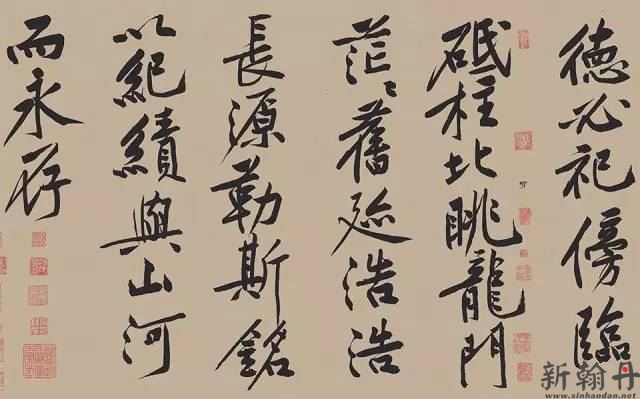 德必祀傍臨
砥柱北眺龍門
茫〻舊迹浩浩
長源勒斯銘
以紀績與山河
而永存
新翰丹
www.xinhandan.net